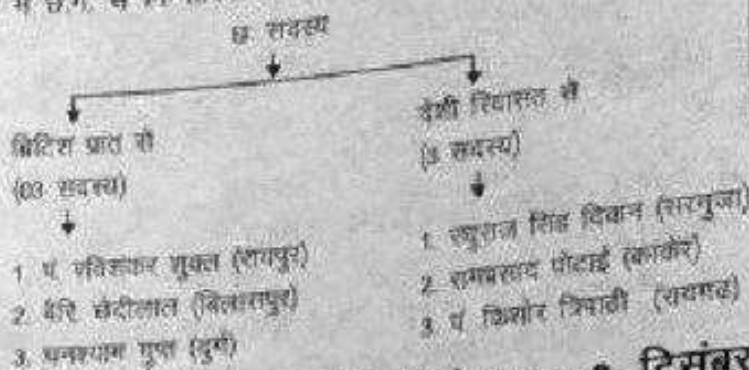 छः सदस्य
ब्रिटिश प्रांत से
(03 सदस्य)
1. पं. रविशंकर शुक्ल (रायपुर)
2. बैरि. छेदीलाल (बिलासपुर)
3. घनश्याम गुप्त (दुर्ग)
देशी रियासत से
(3 सदस्य)
1. रघुराज सिंह दिवान (सरगुजा)
2. रामप्रसाद पोटाई (कांकेर)
3. पं. किशोर त्रिपाठी (रायगढ़)
दिसंबर